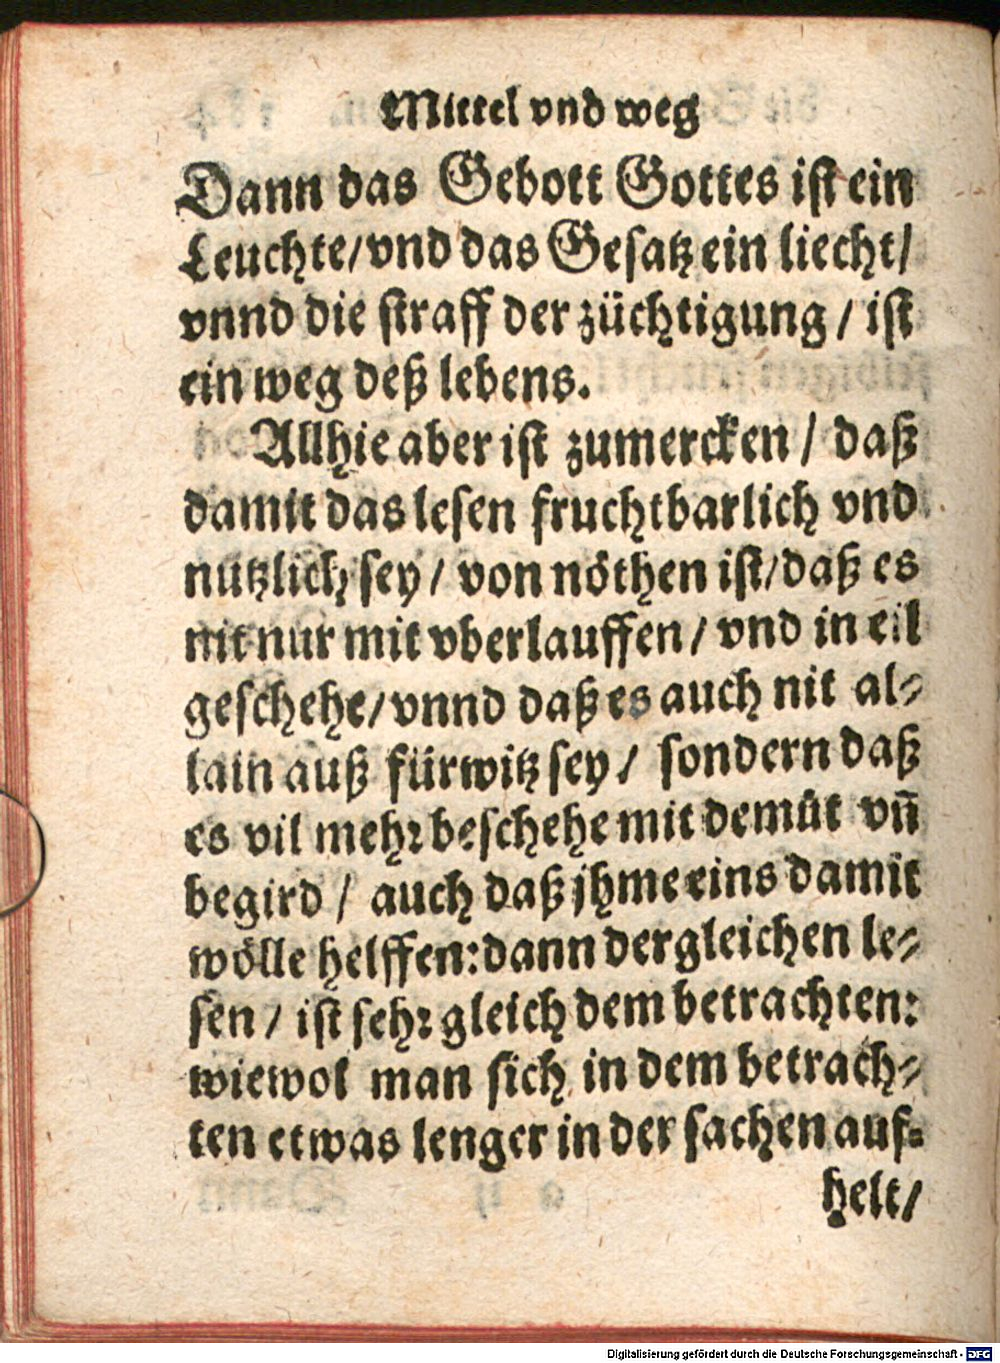 Mittel vnd weg
Dann das Gebott Gottes iſt ein
Leuchte/vnd das Geſatz ein liecht/
vnnd die ſtraff der züchtigung / iſt
ein weg deß lebens.
Allhie aber iſt zumercken / daß
damit das leſen fruchtbarlich vnd
nutzlich ſey / von nöthen iſt/daß es
nit nur mit vberlauffen / vnd in eil
geſchehe/vnnd daß es auch nit al⸗
lain auß fürwitz ſey / ſondern daß
es vil mehꝛ beſchehe mit demůt vn̄
begird / auch daß jhme eins damit
wölle helffen: dann dergleichen le⸗
ſen / iſt ſehꝛ gleich dem betrachten:
wiewol man ſich in dem betrach⸗
ten etwas lenger in der ſachen auf⸗
helt/
Digitalisierung gefördert durch die Deutsche Forschungsgemeinschaft - DFG